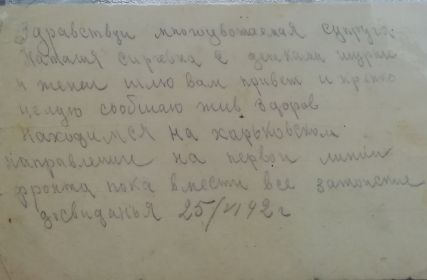 Здравствуи многоуважаемая супруга
Наталя с детками шурие
и женеи шлю вам привет и крепко
целую сообшаю жив здоров
находимся на харьковском
направлении на первои линии
фронта пока вмести все
досвиданья 25/VI 42 г